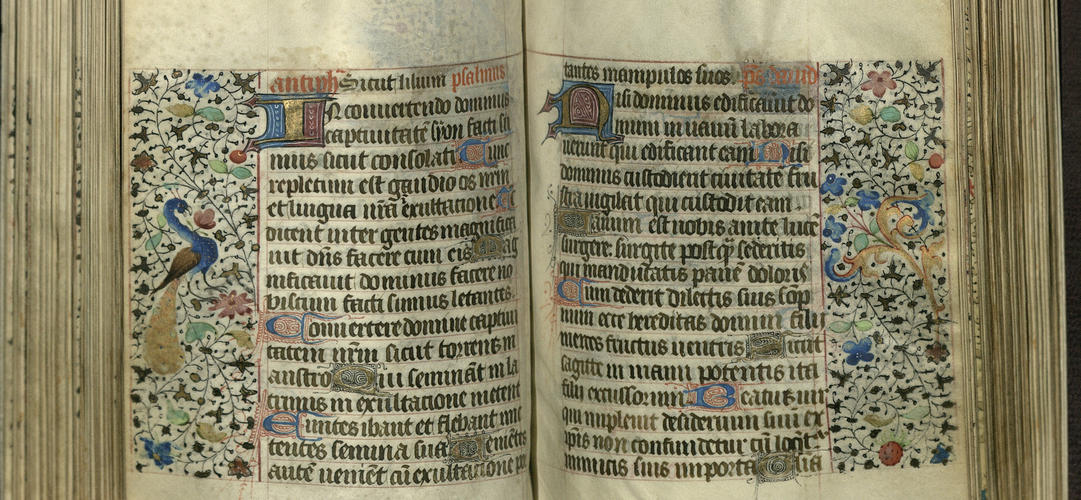 antiph Sicut lilium psalmus
In convertendo dominus
captivitatē syon facti su
mus sicut consolati Tunc
repletum est gaudio os nrm
et lingua nrā exultatione Tc
dicent inter gentes magnifica
vit dns facere cum eis Mag
nificavit dominus facere no
biscum facti sumus letantes.
Convertere domine captivi
tatem nrm sicut torrens in
austro Qui semināt in la
crimis in exultacione metent
Euntes ibant et flebant mit
tentes semina sua Venientes
autē venient cū exultacione por
tantes manipulos suos. ps david
Nisi dominus edificavit do
mum in vanū labora
verunt qui edificant eam Nisi
dominus custodierit civitatē fru
stra vigilat qui custodit eam
Vanum est nobis ante lucē
surgere. surgite postqz sederitis
qui manducatis panē doloris
Cum dederit dilectis suis somp
num ecce hereditas domini filii
merces fructus ventris Sicut
sagitte in manu potentis ita
filii excussorum Beatus vir
qui implevit desiderium suū ex
ipsis non confundetur cū loq̄tur
inimicis suis in porta Glia